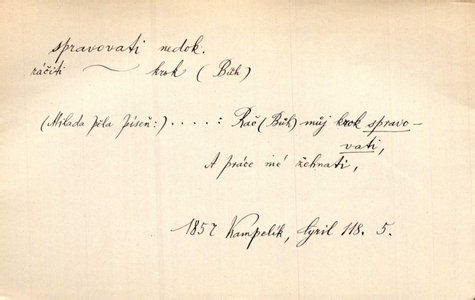 spravovati nedok.
ráčiti ~ krok (Bůh)
(Mlada pěla píseň:) . . . . : Rač (Bůh) můj krok spravo-
vati,
A práce mé žehnati,
1857 Kampelík, Cyril 118. 5.